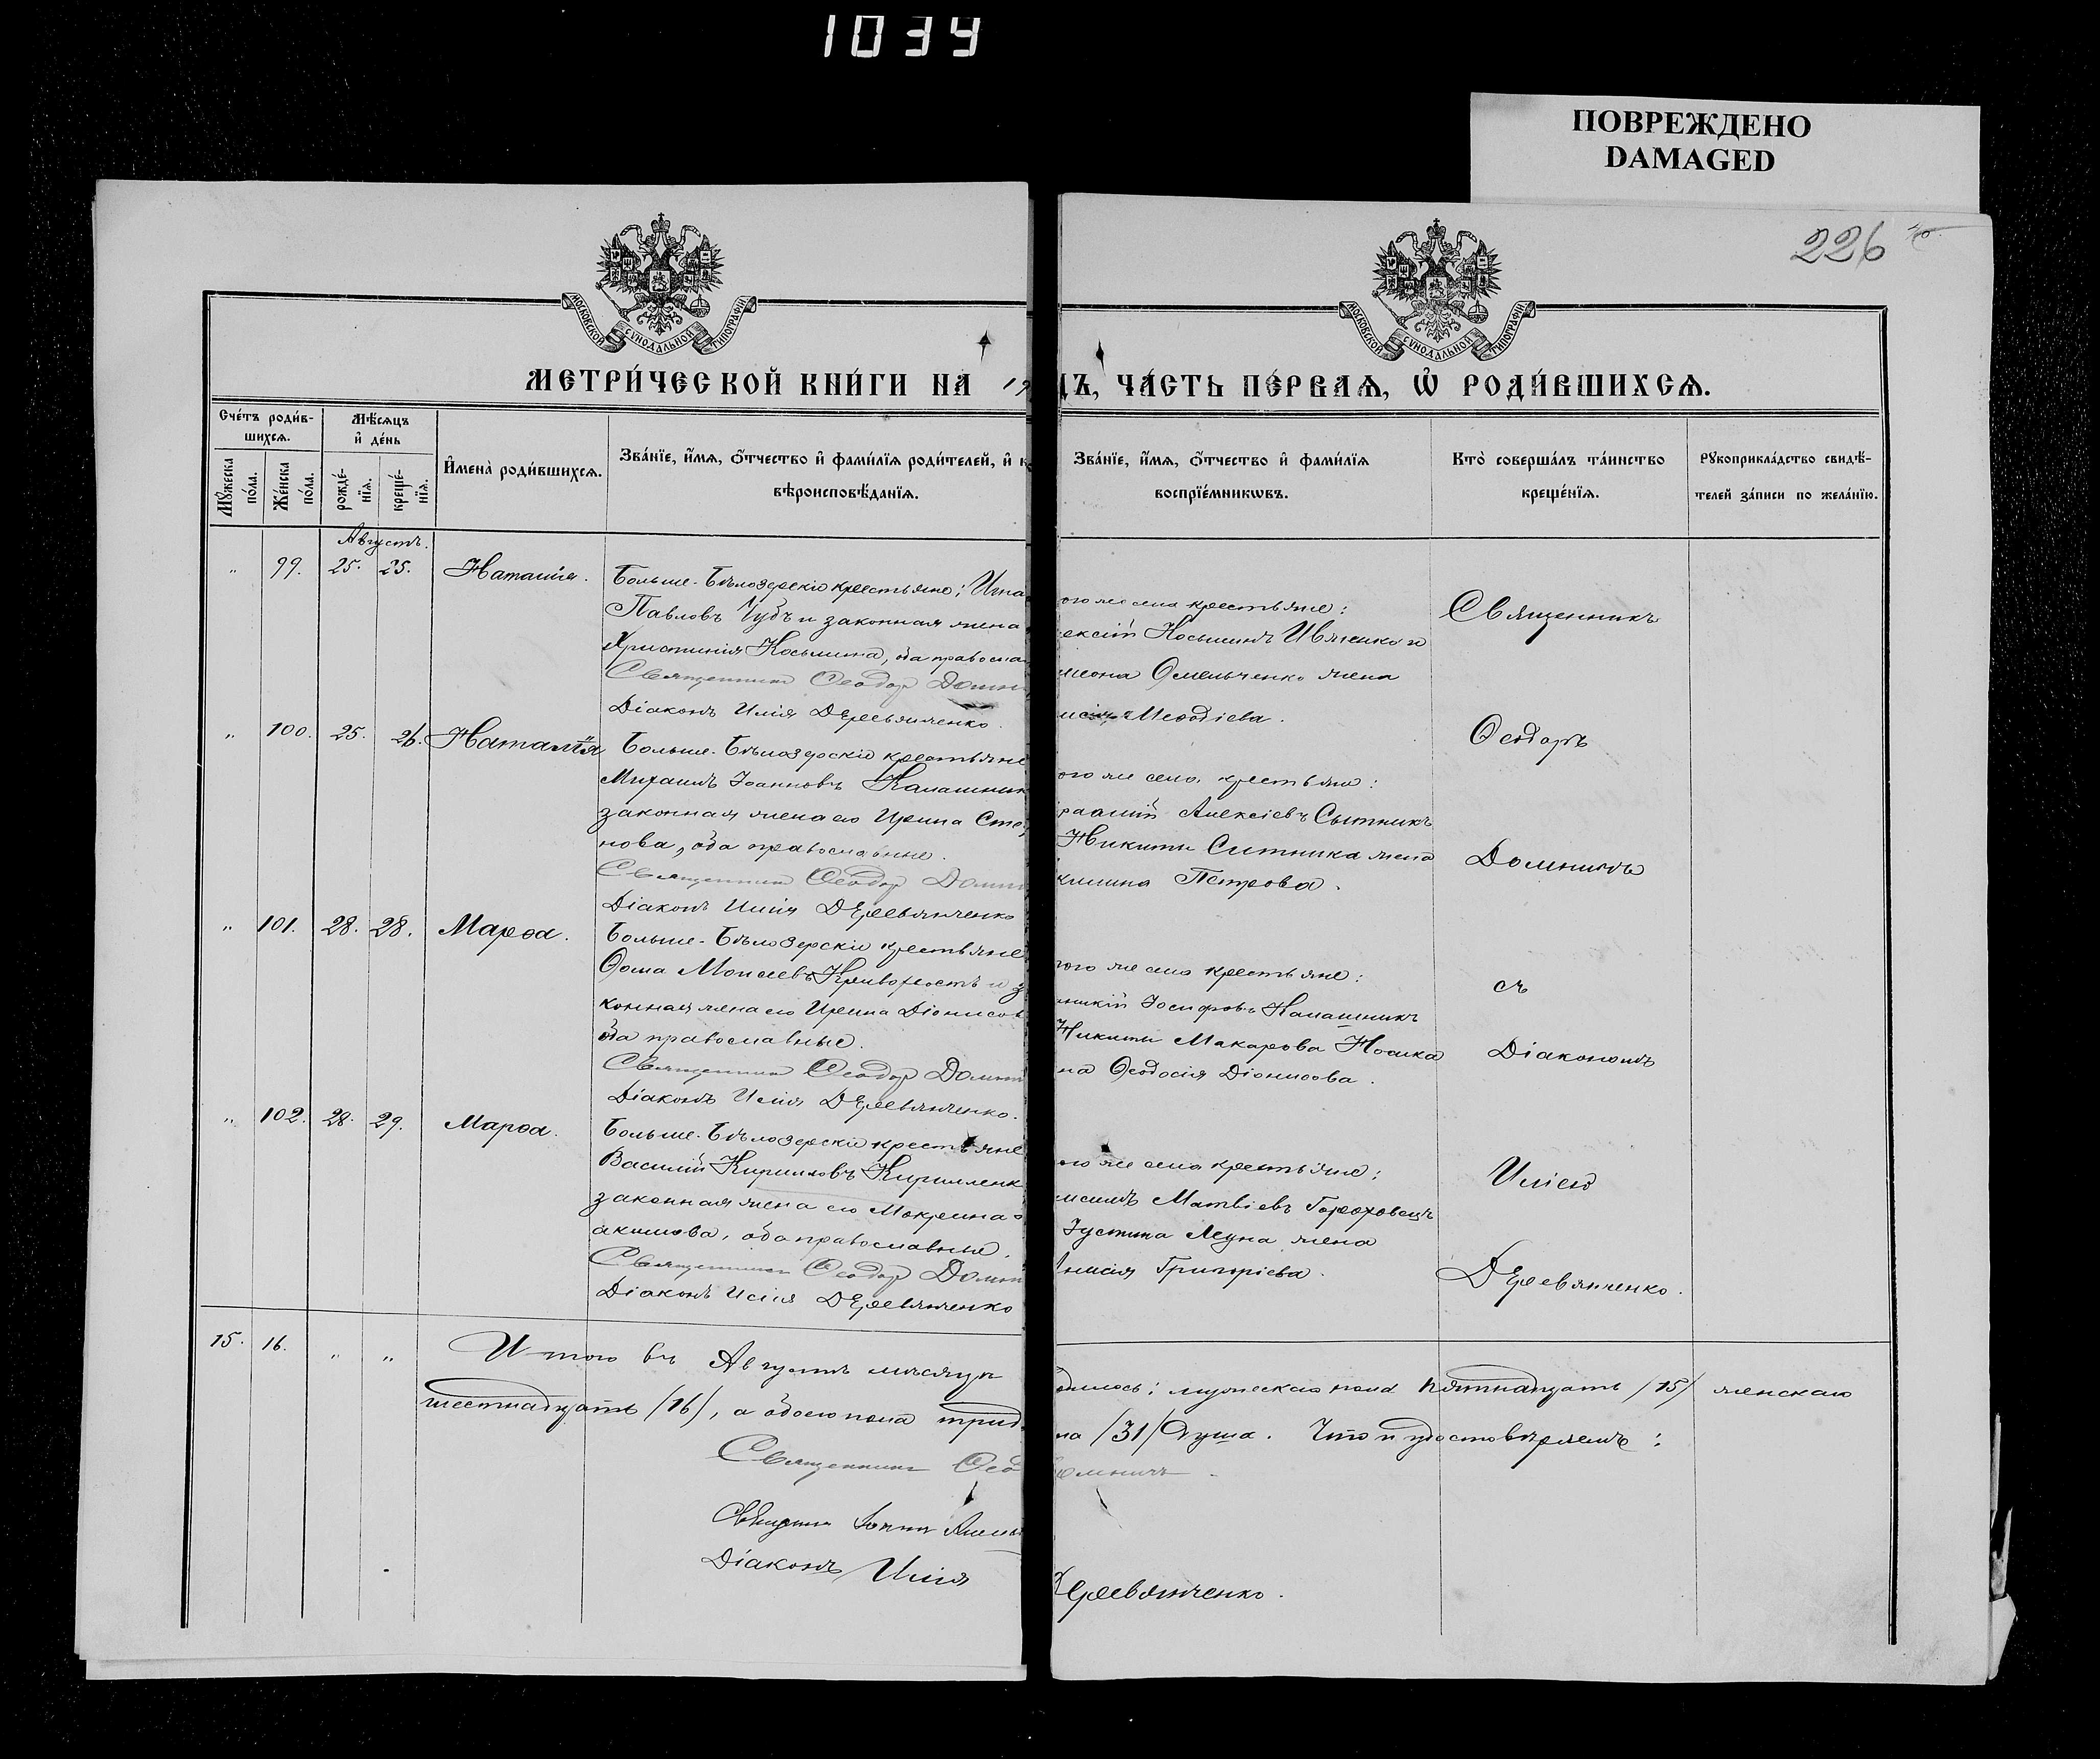 1034
ПОВРЕЖДЕНО
DAMAGED
226
МОСКОВСКОЙ СУНОДАЛЬНОЙ ТИПОГРАФІИ
МОСКОВСКОЙ СУНОДАЛЬНОЙ ТИПОГРАФІИ
МЕТРИ́ЧЕСКОЙ КНИ́ГИ НА 19
ДЪ, ЧА́СТЬ ПЕ́РВАѦ, Ѡ҆ РОДИ́ВШИХСѦ.
Сче́тъ роди́в-
шихсѧ.
Мꙋ́жеска
по́ла.
Же́нска
по́ла.
Мѣ́сѧцъ
и҆ де́нь
рожде́-
нїѧ.
креще́-
нїѧ.
И҆мена̀ роди́вшихсѧ.
Зва́нїе, и҆́мѧ, ѻ҆́тчество и҆ фами́лїѧ роди́телей, и҆ к
вѣроисповѣ́данїѧ.
Зва́нїе, и҆́мѧ, ѻ҆́тчество и҆ фами́лїѧ
воспрїе́мникωвъ.
Кто̀ соверша́лъ та́инство
креще́нїѧ.
Рꙋкоприкла́дство свидѣ́-
телей за́писи по жела́нїю.
Августъ.
„ 99. 25. 25. Наталія.
Больше-Бѣлозерскіе крестьяне; Игна
Павловъ Чубъ и законная жена
Христинія Косьмина, оба православ
Священник Ѳеодор Домни
Діаконъ Илія Деревянченко.
ого же села крестьяне:
ексій Косьминъ Ивженко и
меона Омельченко жена
Меѳодіева.
Священникъ
„ 100. 25. 26. Наталія
Больше-Бѣлозерскіе крестьяне
Михаилъ Іоанновъ Калашник
законная жена его Ирина Сте
нова, оба православные.
Священник Ѳеодор Домни
Діаконъ Илія Деревянченко
ого же села крестьяне:
Алексіевъ Сытникъ
Никиты Ситника жена
Петрова.
Ѳеодоръ
Домничъ
„ 101. 28. 28. Марѳа.
Больше-Бѣлозерскіе крестьяне
Ѳома Моисеевъ Кривохвостъ и за
конная жена его Ирина Діонисов
оба православные.
Священник Ѳеодор Домни
Діаконъ Илія Деревянченко.
того же села крестьяне:
Іосифовъ Калашникъ
Никиты Макарова Носика
на Ѳеодосія Діонисова.
съ
Діакономъ
„ 102. 28. 29. Марѳа.
Больше-Бѣлозерскіе крестьяне
Василій Кирилловъ Кириленк
законная жена его Макрина
акимова, оба православные.
Священник Ѳеодор Домни
Діаконъ Илія Деревянченко
ого же села крестьяне:
Матвіевъ Гороховецъ
Іустина Леуна жена
Григоріева.
Иліею
Деревянченко.
15. 16. „ „ Итого въ Августѣ мѣсяцѣ
одилось: мужескаго пола пятнадцать /15/ женскаго
шестнадцать /16/, а обоего пола трид
на /31/ душа. Что и удостовѣряемъ:
Священник Ѳео
омничъ.
Діаконъ Илія
Деревянченко.